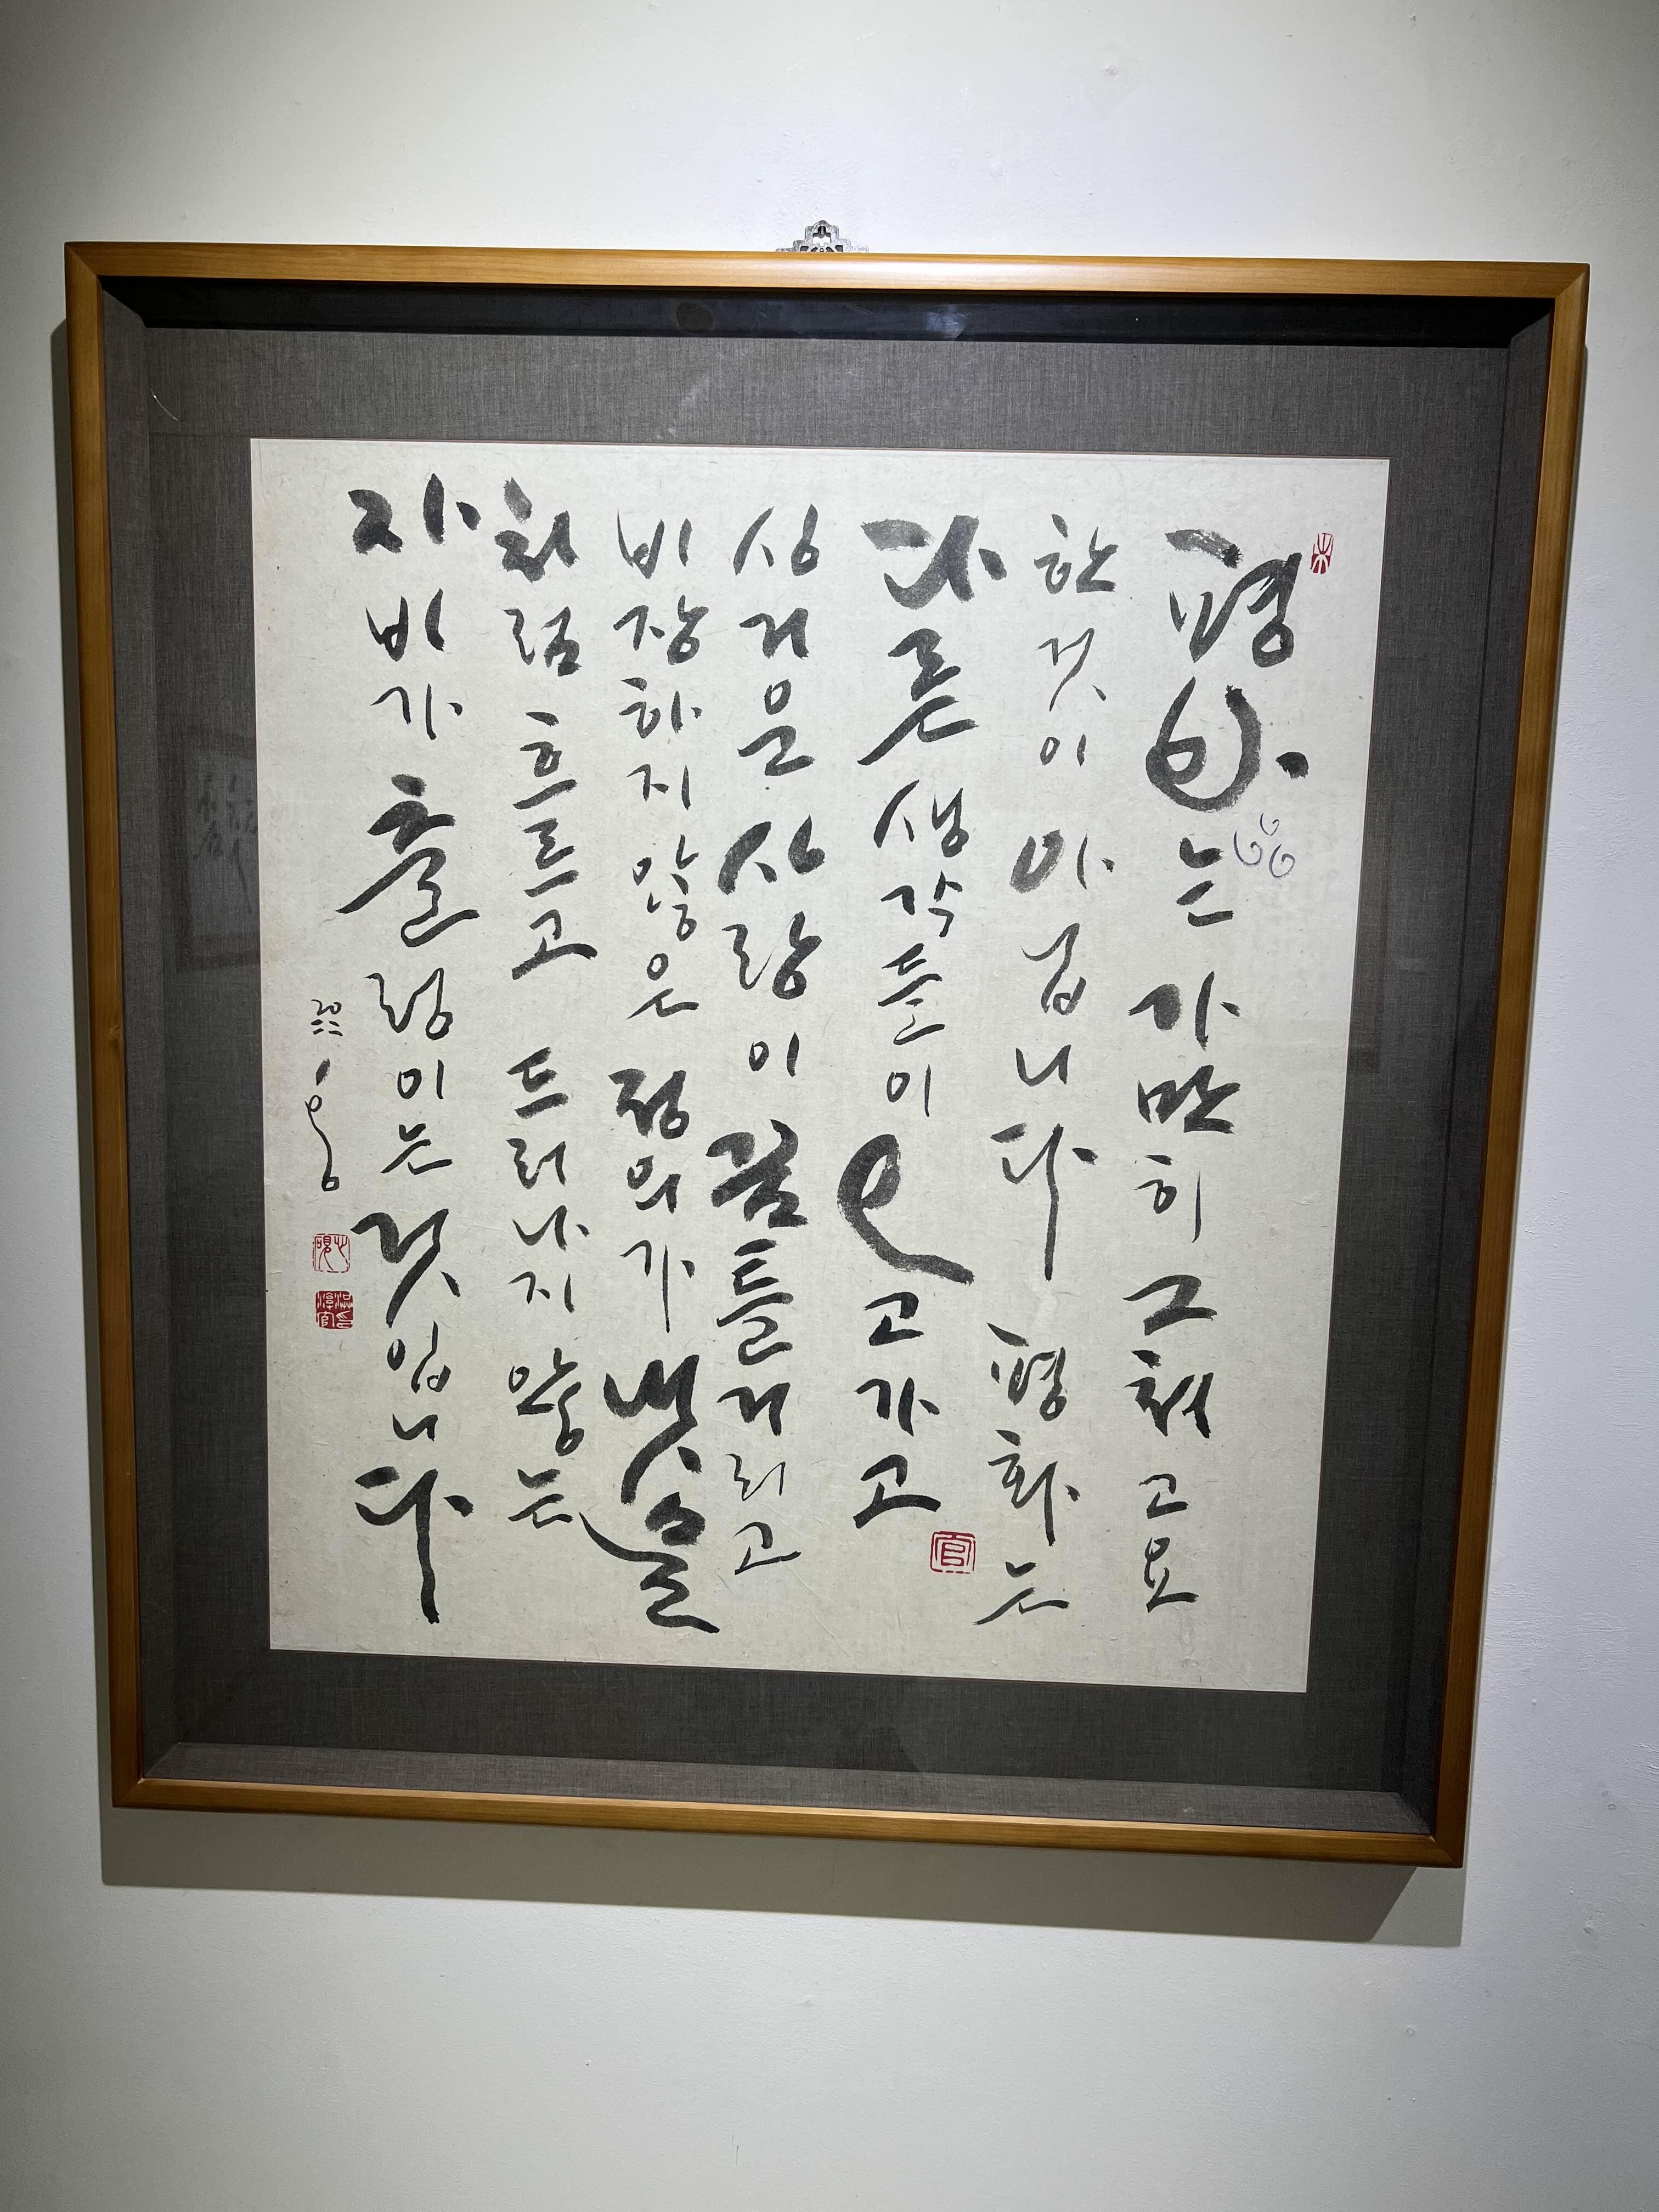 평화는 가만히 그쳐 고요
한 것이 아닙니다 평화는
다른 생각들이 오고가고
싱거운 사랑이 꿈틀거리고
비장하지 않은 정의가 냇물
처럼 흐르고 드러나지 않는
자비가 출렁이는 것입니다
官